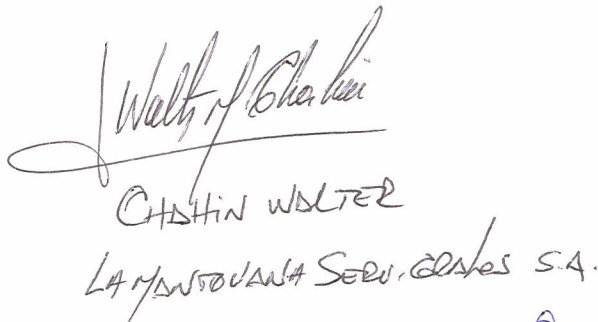 Walter M Chahin
CHAHIN WALTER
LA MANTOVANA SERV. GRALES S.A.